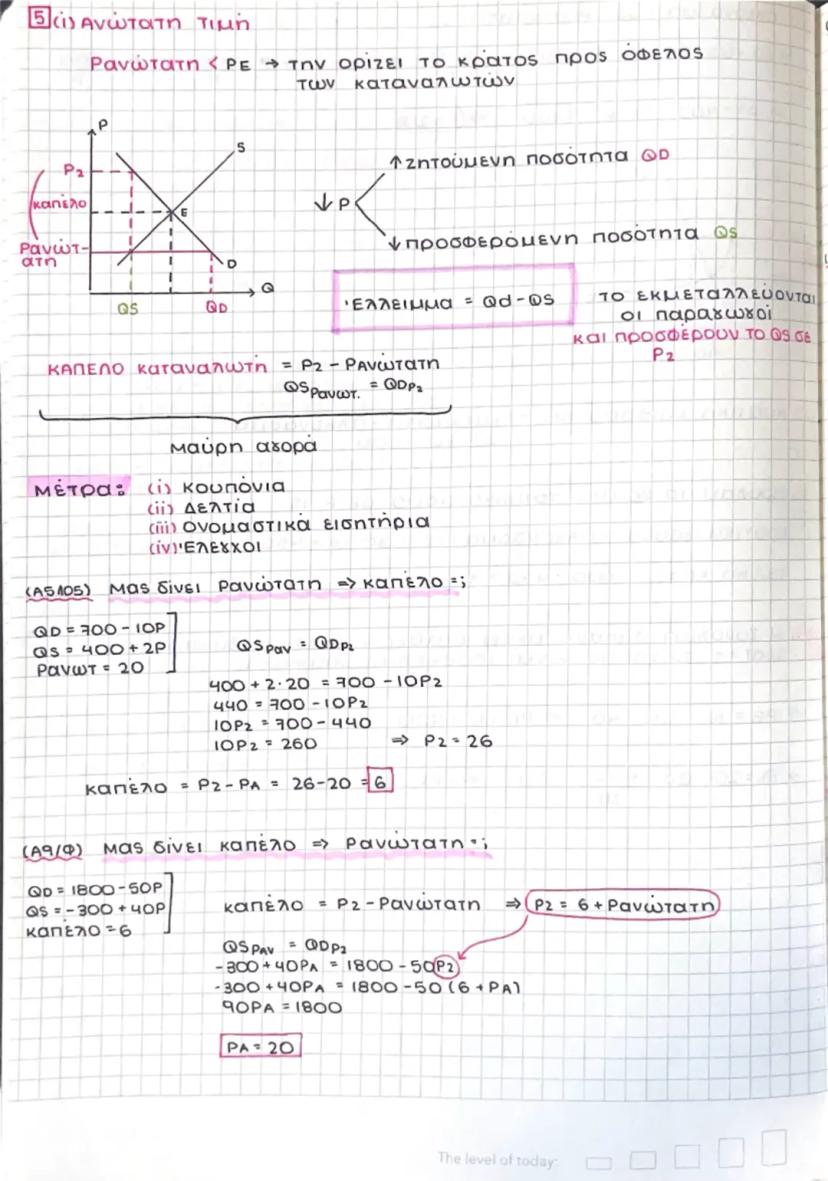 5 (i) Ανώτατη τιμή
Ρανώτατη < PE → την ορίζει το κράτος προς όφελος
των καταναλωτών
P
S
P2
καπέλο
E
Ρανώτ-
ατη
D
Q
QS
QD
↓ P
↑ ζητούμενη ποσότητα QD
↓ προσφερόμενη ποσότητα QS
Έλλειμμα = Qd-QS
το εκμεταλλεύονται
οι παραγωγοί
και προσφέρουν το QS σε
P2
ΚΑΠΕΛΟ καταναλωτή = P2 - Ρανώτατη
QSΡανωτ. = QDP2
μαύρη αγορά
μέτρα: (i) κουπόνια
(ii) Δελτία
(iii) ονομαστικά εισητήρια
(iv) Έλεγχοι
(Α5Λ05) Μας δίνει Ρανώτατη => καπέλο =;
QD = 700 - 10P
QS = 400 + 2P
Ρανωτ = 20
QSΡαν = QDP2
400 + 2·20 = 700 - 10P2
440 = 700 - 10P2
10P2 = 700 - 440
10P2 = 260 => P2 = 26
καπέλο = P2 - PA = 26-20 = 6
(Α9/Φ) Μας δίνει καπέλο => Ρανώτατη =;
QD = 1800 - 50P
QS = -300 + 40P
καπέλο = 6
καπέλο = P2 - Ρανώτατη => P2 = 6 + Ρανώτατη
QSPAV = QDP2
-300 + 40PA = 1800 - 50P2
-300 + 40PA = 1800 - 50 (6 + PA)
90PA = 1800
PA = 20
The level of today: